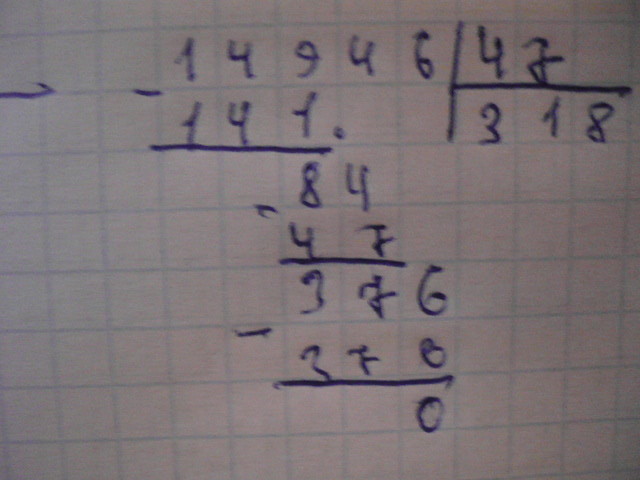 14946 | 47
- 141. | 318
- 84
47
376
- 376
0